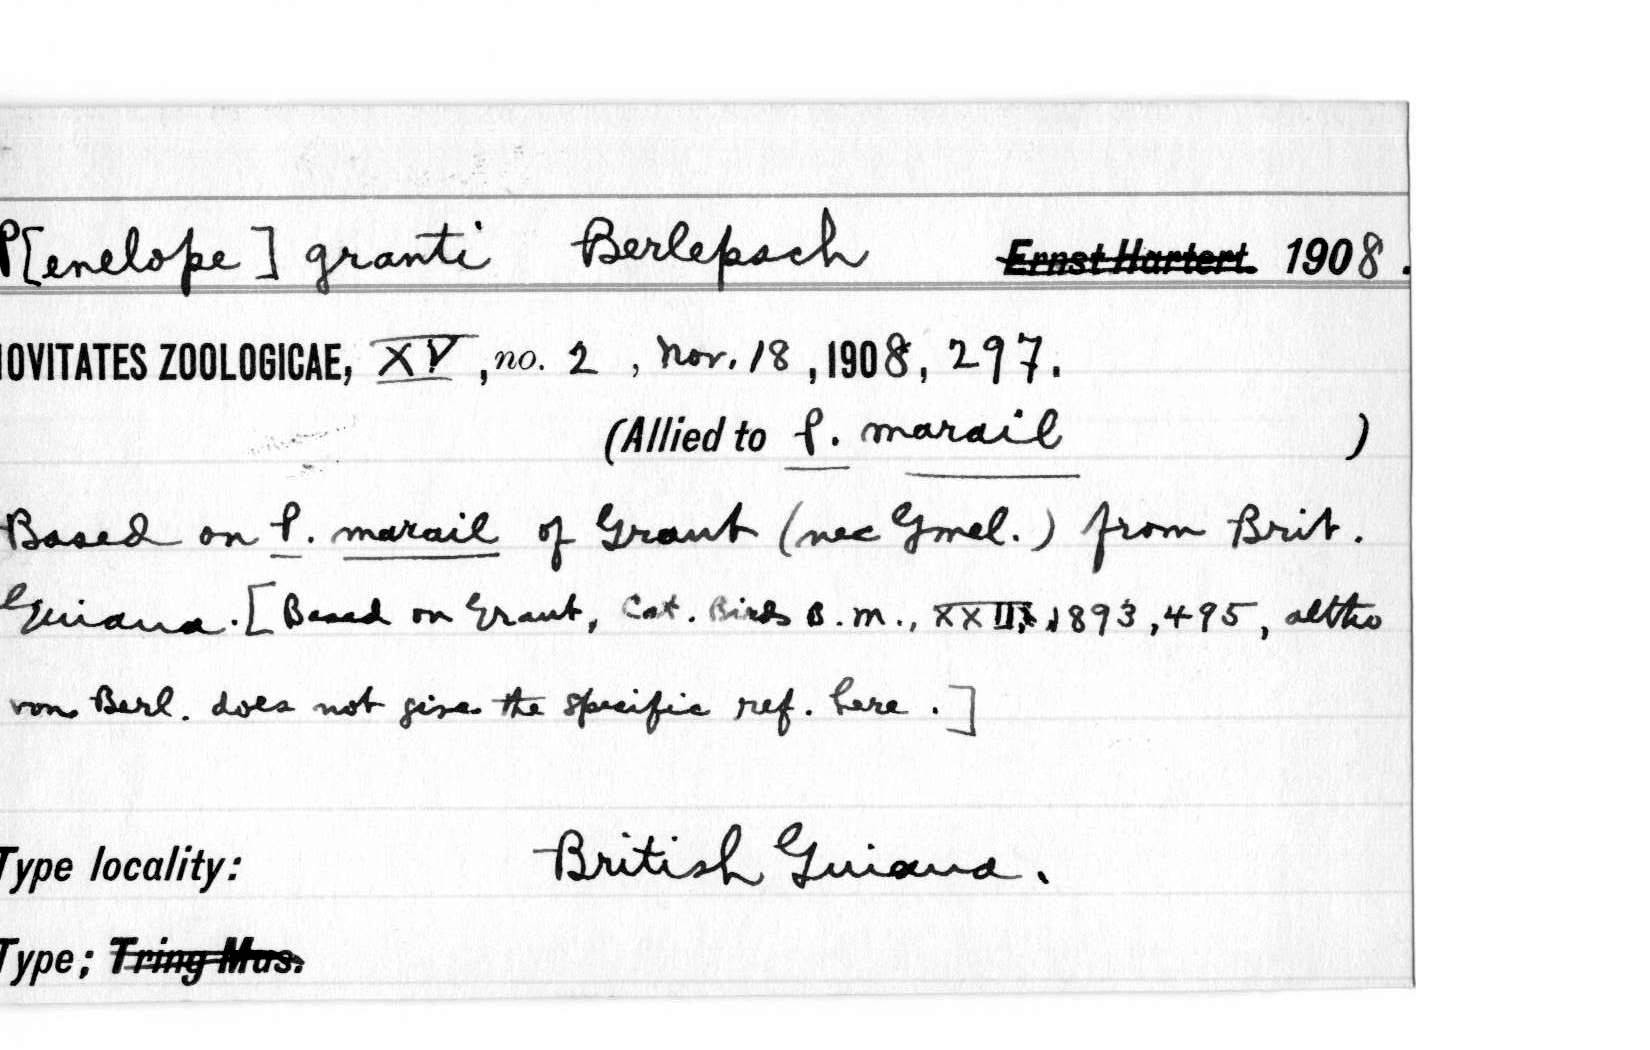 P[enelope] granti Berlepsch Ernst Hartert. 1908.
NOVITATES ZOOLOGICAE, XV, no. 2, Nov. 18, 1908, 297.
(Allied to P. marail )
Based on P. marail of Grant (nec Gmel.) from Brit.
Guiana. [Based on Grant, Cat. Birds B.M., XXII, 1893, 495, altho
von Berl. does not give the specific ref. here.]
Type locality: British Guiana.
Type; Tring Mus.